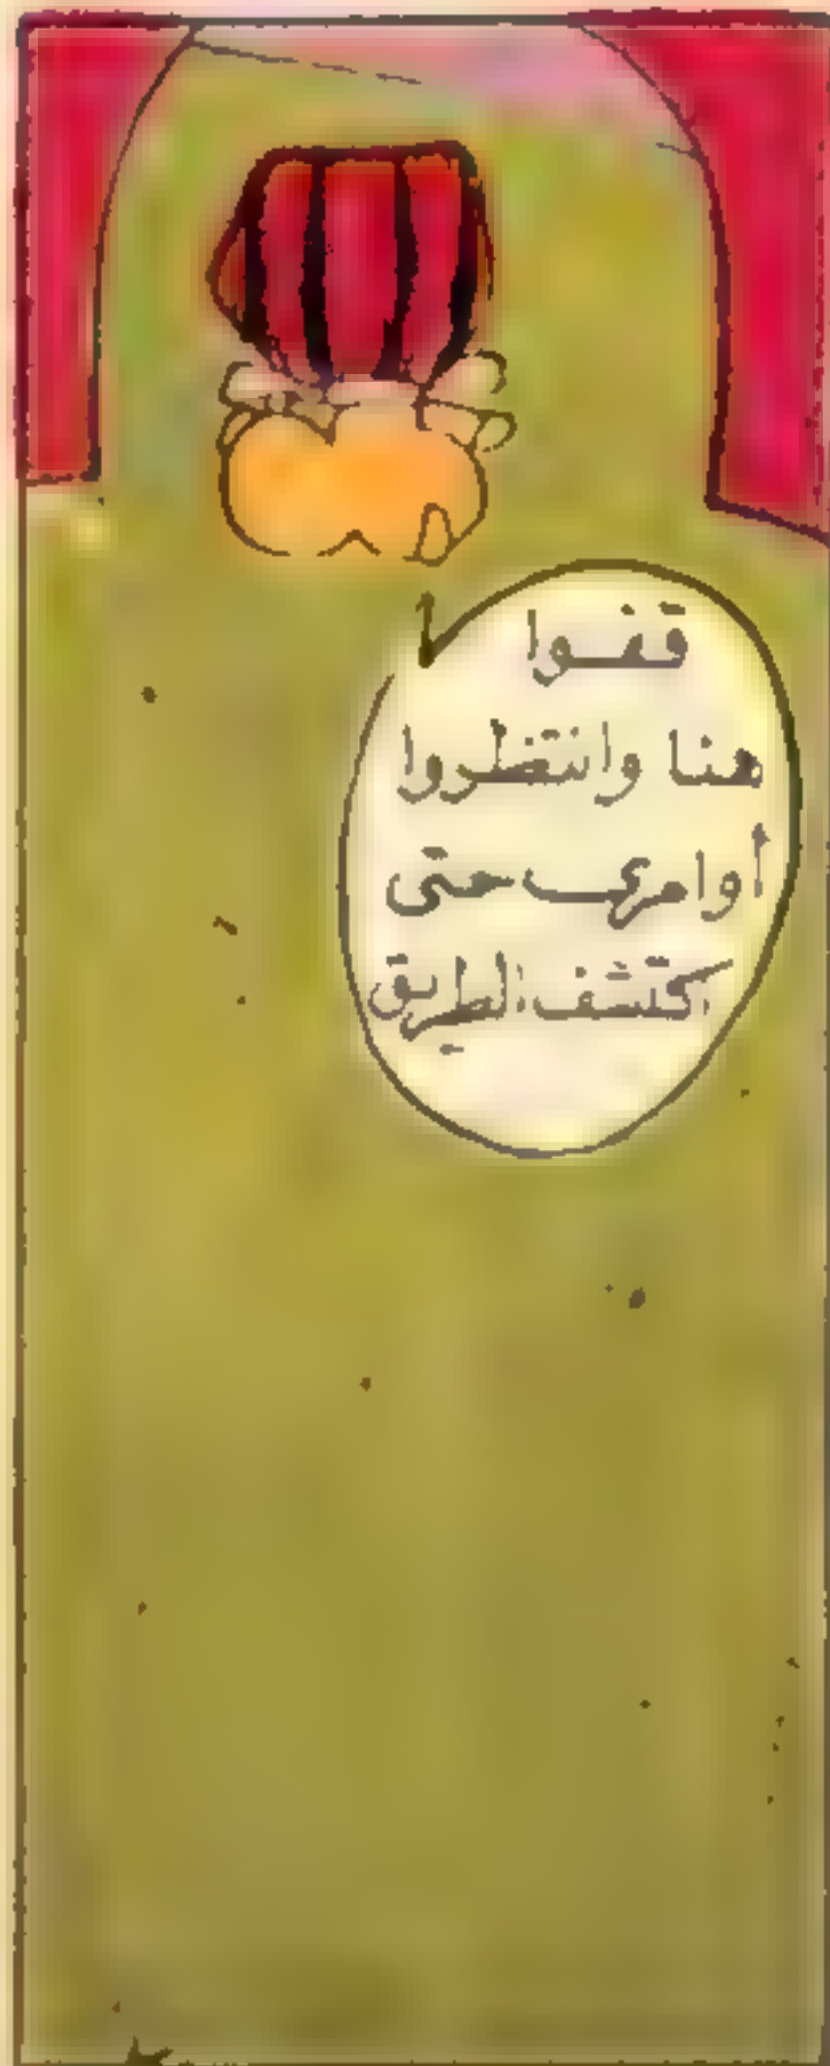 قفوا
هنا وانتظروا
أوامري حتى
اكتشف الطريق